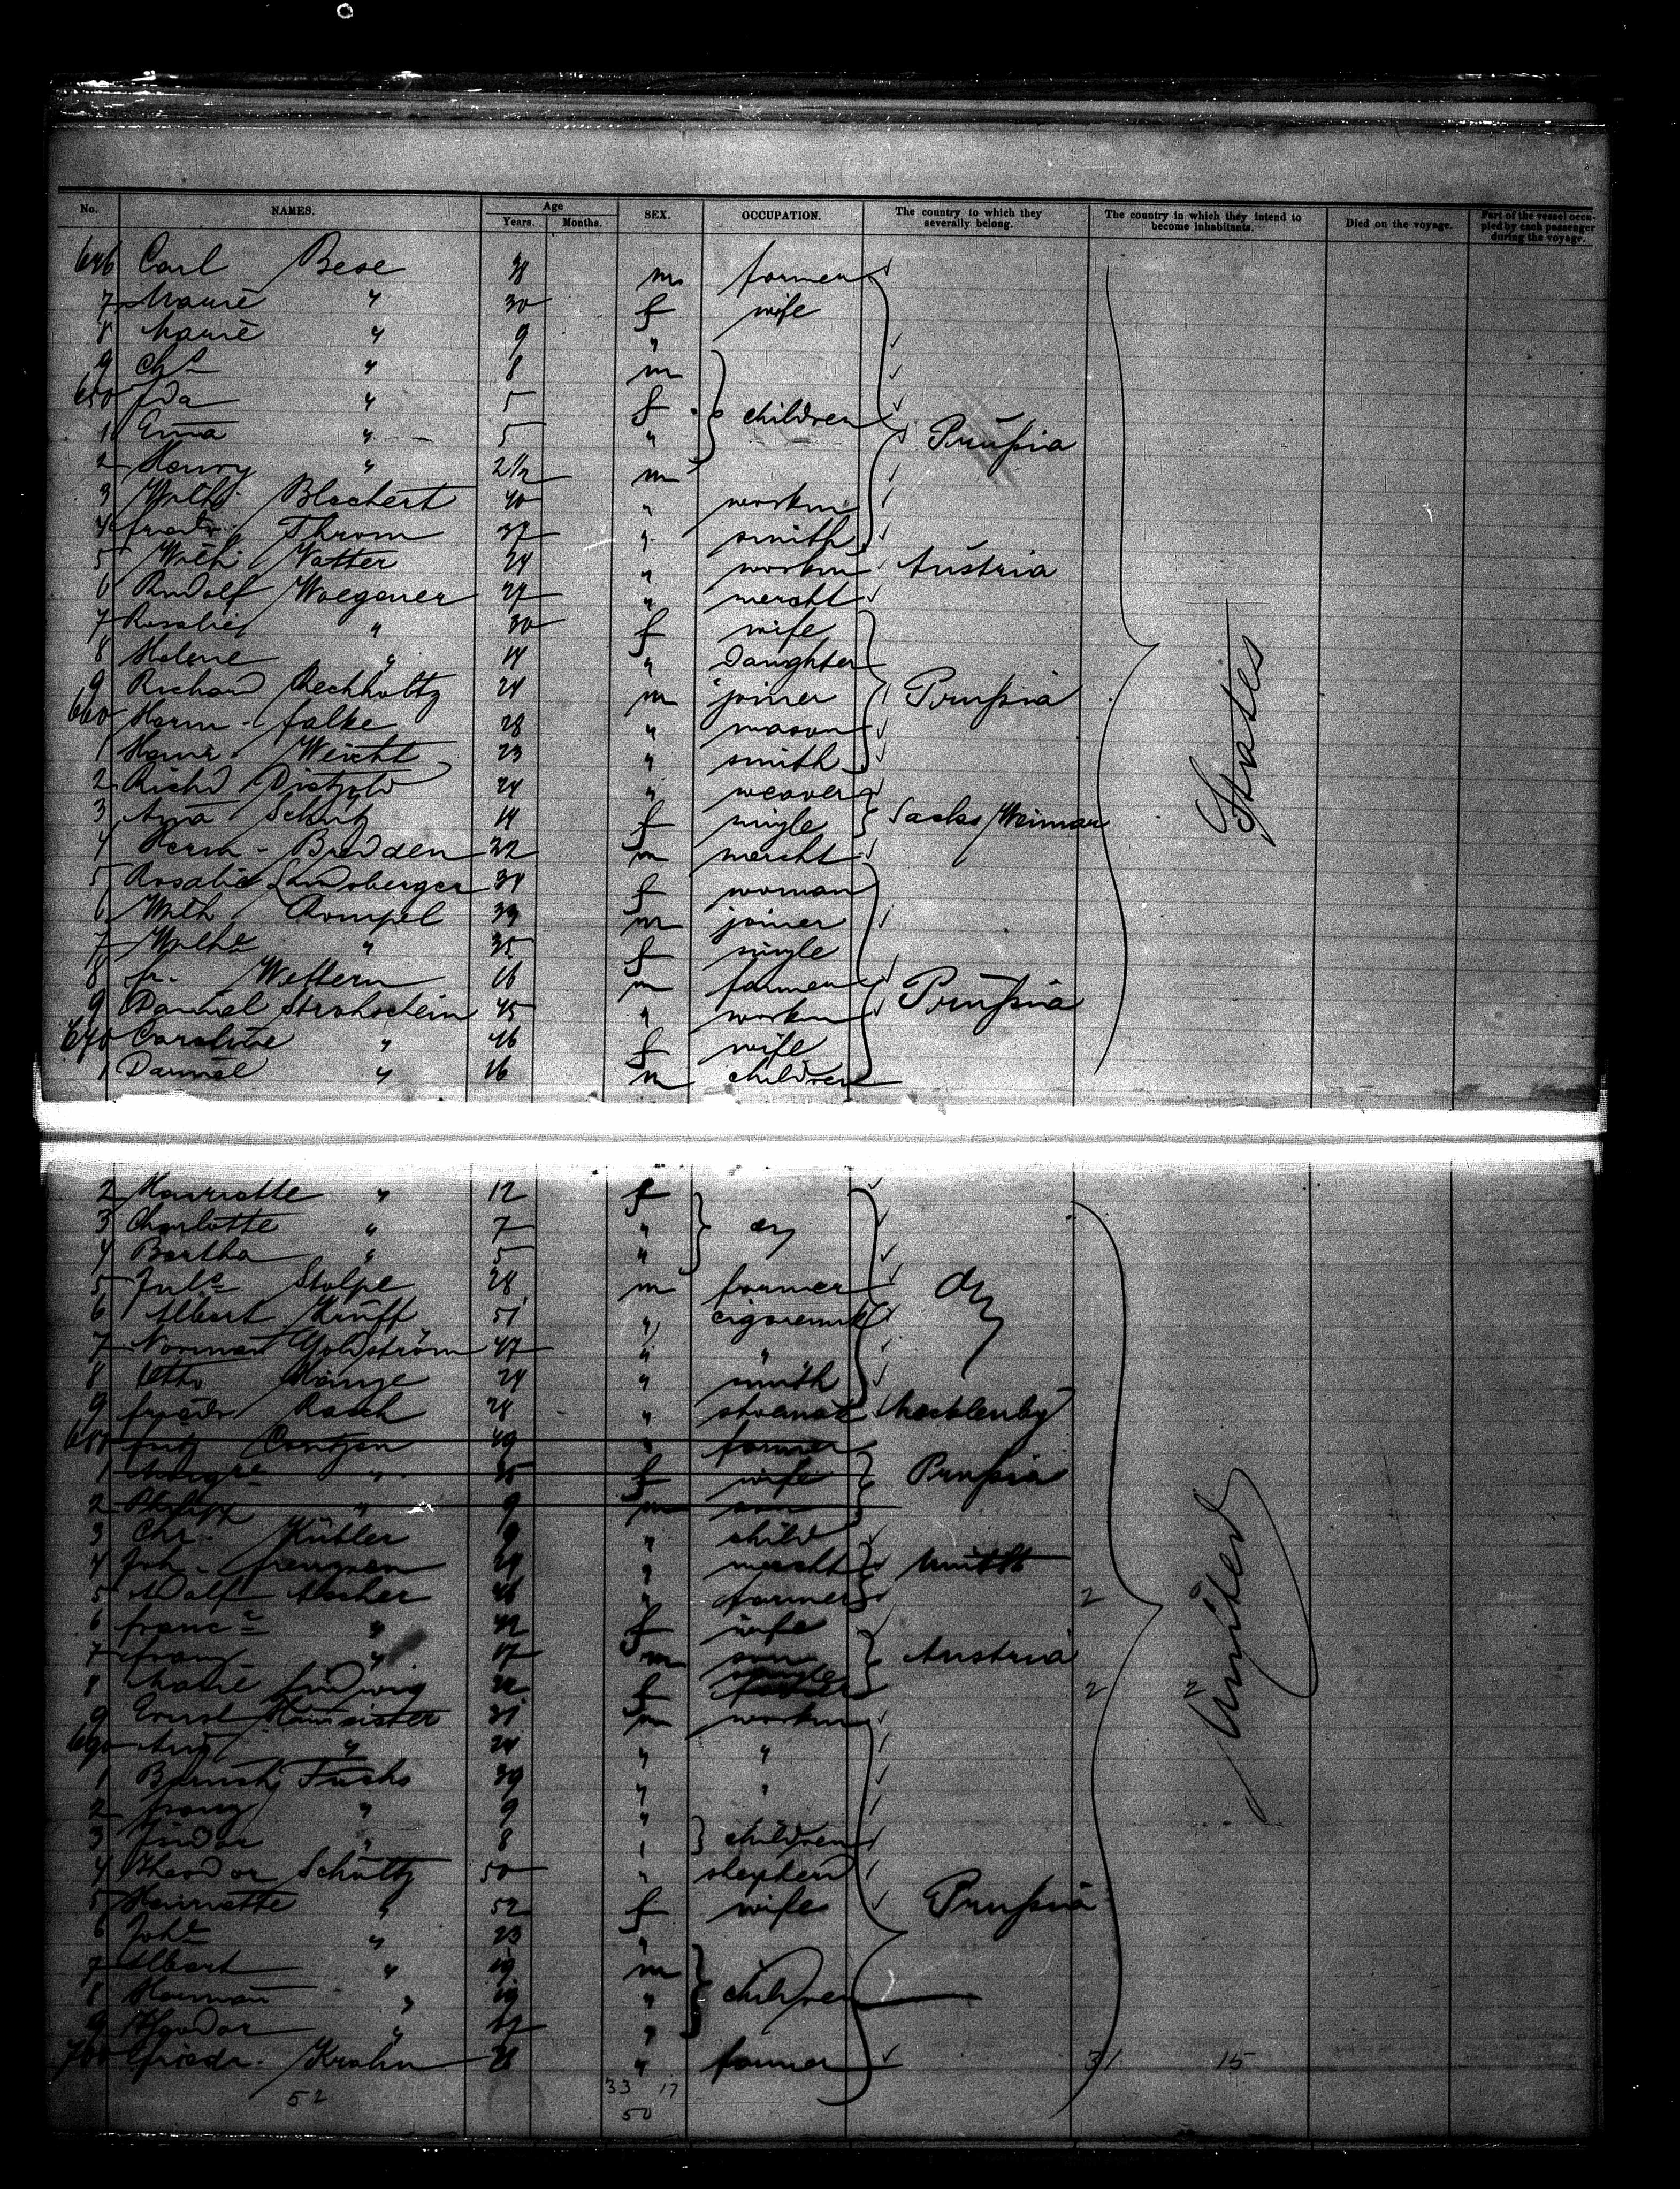 No. NAMES. Age Years. Months. SEX. OCCUPATION. The country to which they severally belong. The country in which they intend to become inhabitants. Died on the voyage. Part of the vessel occupied by each passenger during the voyage.
646 Carl Bese 38 m farmer
7 Marie " 30 f wife
8 Marie " 9 "
9 Chs " 8 m
650 Ida " 5 f children
1 Ema " 5 " Prußia
2 Henry " 2 1/2 m
3 Wilh. Blochert 40 " workm
4 Friedr. Throm 37 " smith
5 Wilh. Vatter 24 " workm Austria
6 Rudolf Woegener 27 " mercht
7 Rosalie " 30 f wife
8 Helene " 14 " Daughter
9 Richard Rechholtz 24 m joiner Prußia
660 Herm. Falke 28 " mason
1 Heinr. Weicht 23 " smith States
2 Richd 24 " weaver
3 Ana Schutz 14 f single Sachs/Weimar
4 Herm. Bredden 22 m mercht
5 Rosalie Landsberger 34 f woman
6 Wilh. Rompel 39 m joiner
7 Wilhe " 35 f single
8 Fr. Wettern 16 m farmer
9 Daniel Strohschein 45 " workm Prußia
670 Caroline " 46 f wife
1 Daniel " 16 m children
2 Henriette " 12 f
3 Charlotte " 7 "
4 Bertha " 5 "
5 Juls Stolpe 28 m farmer
6 Albert Kruff 51 " cigaremk
7 Norman Goldström 47 " "
8 Otto 24 " smith
9 Friedr Rasch 28 " Mecklenbg
680 Fritz Contzen 49 " farmer
1 Margre " 35 f wife Prußia
2 Philipp " 9 m son
3 Chr. Kübler 9 " child
4 Joh. 24 " mercht
5 Adolf Ascher 46 " farmer 2
6 Franc " 42 f wife
7 Franz " 17 m son Austria
8 Marie Ludwig 22 f single 2 2 United
9 Ernst 31 m workm
690 Aug " 24 " "
1 Fuchs 39 " "
2 Franz " 9 "
3 Isidor " 8 " children
4 Theodor Schultz 50 " shepherd
5 Henriette " 52 f wife Prußia
6 Joh " 23 "
7 Albert " 19 m
8 Herman " 19 " children
9 Theodor " 17 "
700 Friedr. Krohn 28 " farmer 31 15
52 33 17
50